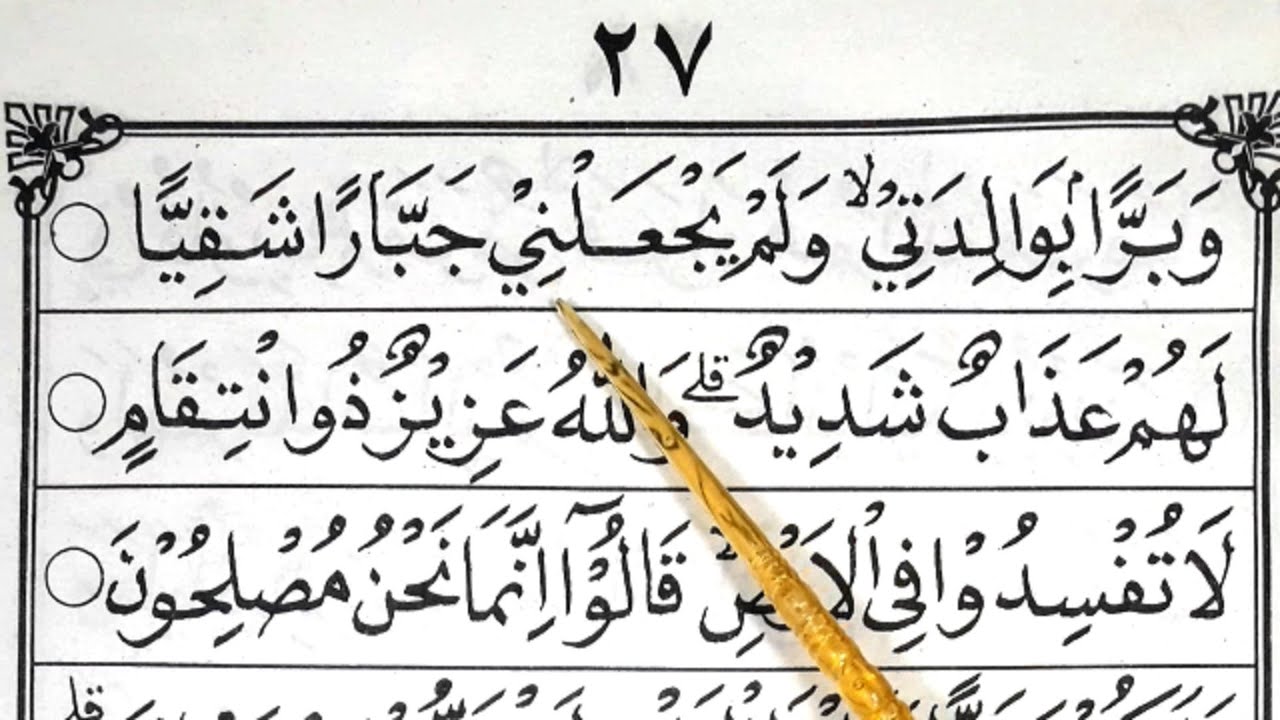 ٢٧
وَبَرًّا بِوَالِدَتِيْ ۙ وَلَمْ يَجْعَلْنِيْ جَبَّارًا شَقِيًّا ○
لَهُمْ عَذَابٌ شَدِيْدٌ ۗ وَاللّٰهُ عَزِيْزٌ ذُوا نْتِقَامٍ ○
لَا تُفْسِدُوْا فِى الْاَرْضِ ۙ قَالُوْٓا اِنَّمَا نَحْنُ مُصْلِحُوْنَ ○